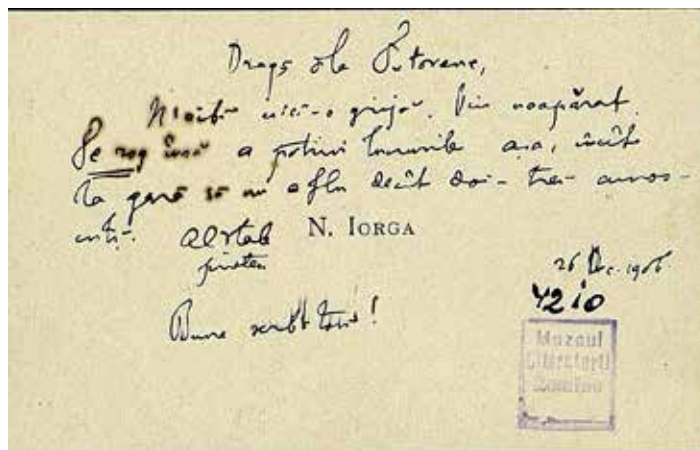 Dragă dle Putorene,
N'aibi nici-o grijă. Viu neapărat.
Te rog însă a potrivi lucrurile așa, încât
la gară să nu aflu decât doi-trei cunos-
cuți.
Al dtale N. IORGA
prieten
26 Dec. 1906
4210
Bune serbători!
Muzeul
Literaturii
Romîne